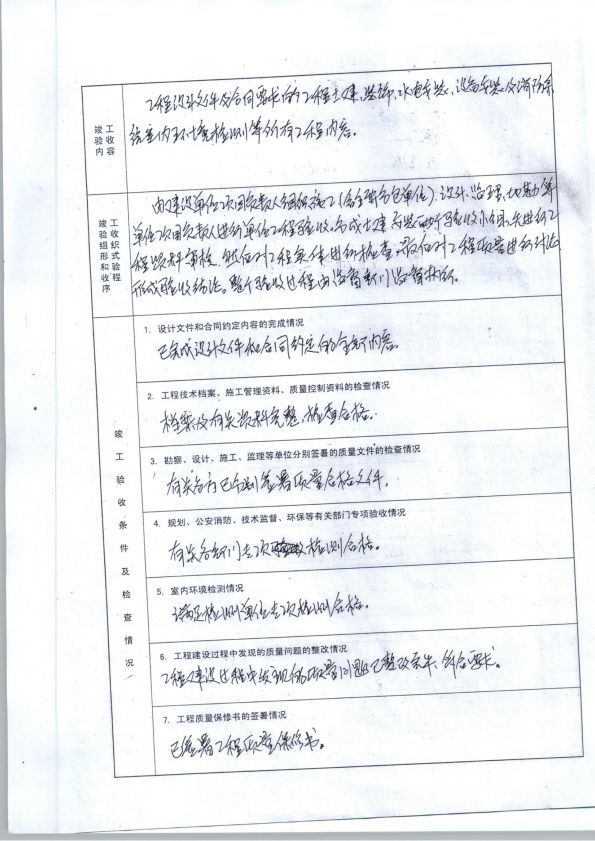 竣工
验收
内容
工程设计文件及合同要求的工程土建、装饰、水电安装、设备安装及消防系
统室内环境检测等所有工程内容。
竣工
验收
组织
形式
和验
收程
序
由建设单位项目负责人组织施工(含全部分包单位)、设计、监理、地勘等
单位项目负责人进行单位工程验收。分成土建与安装两个验收小组,先进行工
程资料审核,然后对工程实体进行检查,最后对工程质量进行讨论
形成验收结论。整个验收过程由监督部门监督执行。
竣工验收条件及检查情况
1. 设计文件和合同约定内容的完成情况
已完成设计文件和合同约定的全部内容。
2. 工程技术档案、施工管理资料、质量控制资料的检查情况
档案及有关资料完整,检查合格。
3. 勘察、设计、施工、监理等单位分别签署的质量文件的检查情况
有关各方已分别签署质量合格文件。
4. 规划、公安消防、技术监督、环保等有关部门专项验收情况
有关各部门专项检测合格。
5. 室内环境检测情况
检测单位专项检测合格。
6. 工程建设过程中发现的质量问题的整改情况
工程建设过程中发现的质量问题已整改完毕,符合要求。
7. 工程质量保修书的签署情况
已签署工程质量保修书。